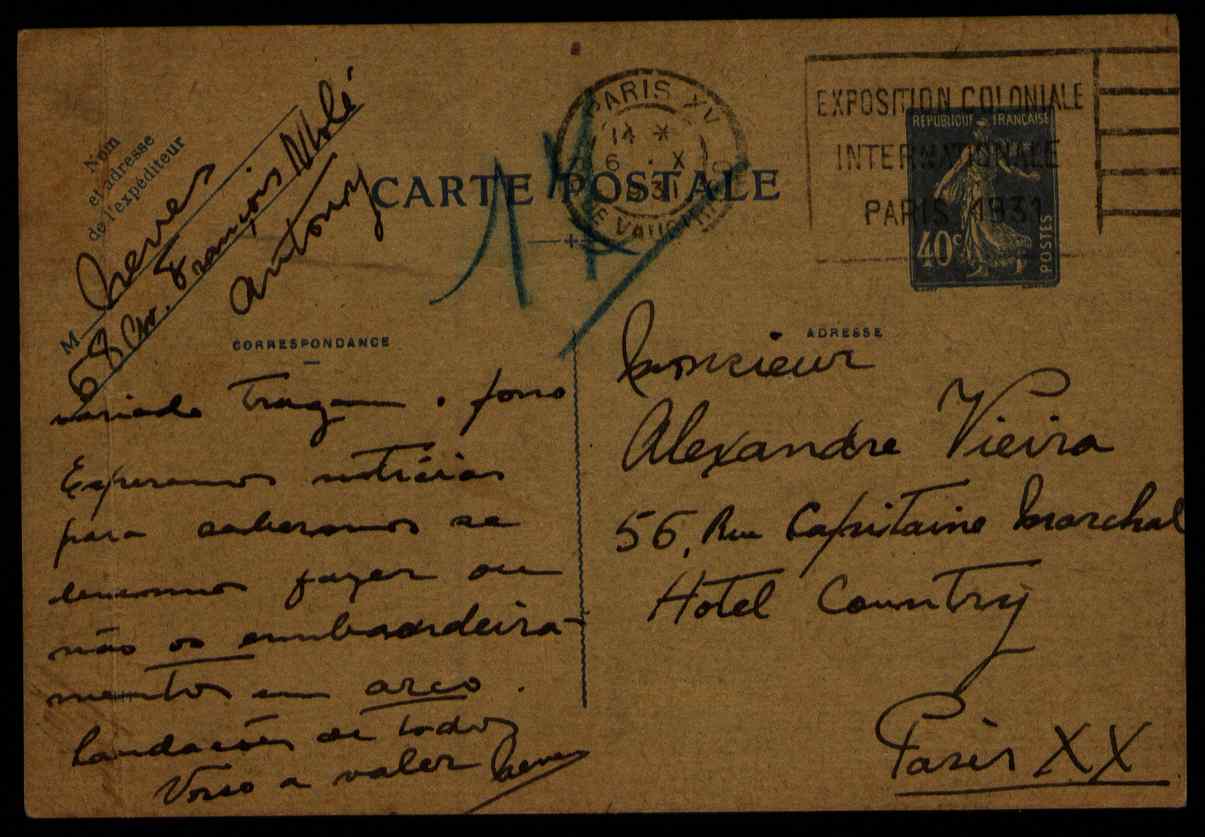 Nom
et adresse
de l'expéditeur
M. Neves
68 Av. François Molé
Antony
CARTE POSTALE
PARIS XV
14 *
6 · X
31
RUE DE VAUGIRARD
EXPOSITION COLONIALE
INTERNATIONALE
PARIS 1931
REPUBLIQUE FRANÇAISE
40c
POSTES
CORRESPONDANCE
variado tragam
Esperamos notícias
para sabermos se
devemos fazer ou
não os embandeira-
mentos em arco.
Saudações de todos
Vosso a valer Neves
ADRESSE
Monsieur
Alexandre Vieira
56, Rue Capitaine Marchal
Hotel Country
Paris XX